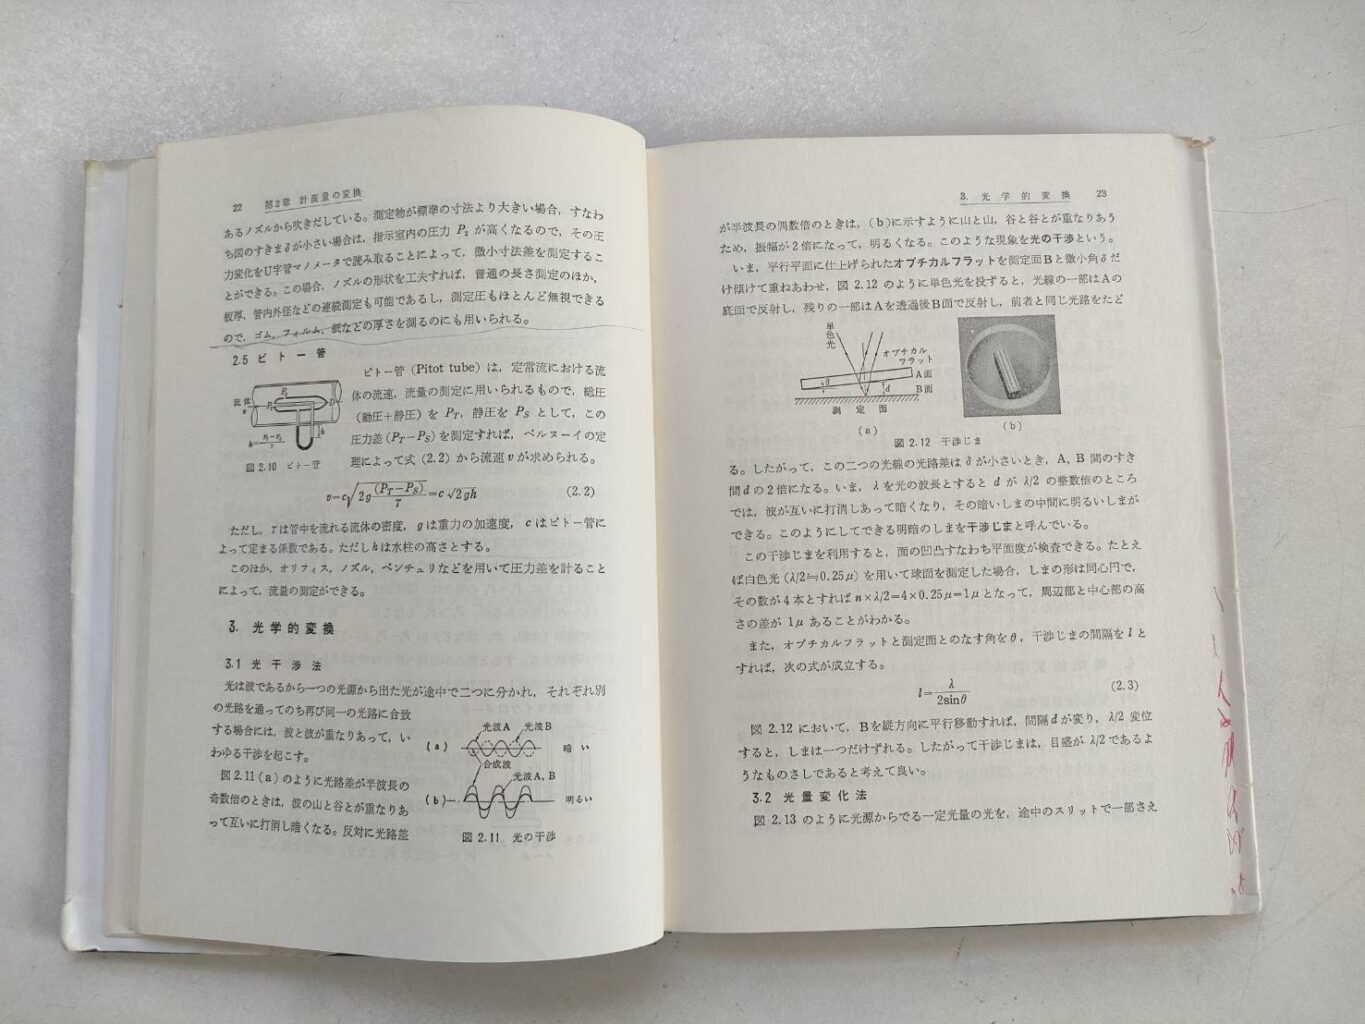 22 第2章 計測量の変換
あるノズルから吹きだしている。測定物が標準の寸法より大きい場合，すなわ
ち図のすきまδが小さい場合は，指示室内の圧力 P₂ が高くなるので，その圧
力変化をU字管マノメータで読み取ることによって，微小寸法差を測定するこ
とができる。この場合，ノズルの形状を工夫すれば，普通の長さ測定のほか，
板厚，管内外径などの連続測定も可能であるし，測定圧もほとんど無視できる
ので，ゴム，フィルム，紙などの厚さを測るのにも用いられる。
2.5 ピトー管
ピトー管 (Pitot tube) は，定常流における流
体の流速，流量の測定に用いられるもので，総圧
(動圧＋静圧) を P_T，静圧を P_S として，この
圧力差 (P_T−P_S) を測定すれば，ベルヌーイの定
理によって式 (2.2) から流速 v が求められる。
流体
図 2.10 ピトー管
v=c√2g(P_T−P_S)/γ=c√2gh (2.2)
ただし，γは管中を流れる流体の密度，gは重力の加速度，cはピトー管に
よって定まる係数である。ただしhは水柱の高さとする。
このほか，オリフィス，ノズル，ベンチュリなどを用いて圧力差を計ること
によって，流量の測定ができる。
3. 光学的変換
3.1 光干渉法
光は波であるから一つの光源から出た光が途中で二つに分かれ，それぞれ別
の光路を通ってのち再び同一の光路に合致
する場合には，波と波が重なりあって，い
わゆる干渉を起こす。
図 2.11 (a) のように光路差が半波長の
奇数倍のときは，波の山と谷とが重なりあ
って互いに打消し暗くなる。反対に光路差
光波A 光波B
(a) 暗い
合成波
光波A, B
(b) 明るい
図 2.11 光の干渉
3. 光学的変換 23
が半波長の偶数倍のときは，(b)に示すように山と山，谷と谷とが重なりあう
ため，振幅が2倍になって，明るくなる。このような現象を光の干渉という。
いま，平行平面に仕上げられたオプチカルフラットを測定面Bと微小角δだ
け傾けて重ねあわせ，図 2.12 のように単色光を投ずると，光線の一部はAの
底面で反射し，残りの一部はAを透過後B面で反射し，前者と同じ光路をたど
単色光
オプチカル
フラット
A面
B面
δ
d
測定面
(a)
(b)
図 2.12 干渉じま
る。したがって，この二つの光線の光路差はδが小さいとき，A, B 間のすき
間dの2倍になる。いま，λを光の波長とすると d が λ/2 の整数倍のところ
では，波が互いに打消しあって暗くなり，その暗いしまの中間に明るいしまが
できる。このようにしてできる明暗のしまを干渉じまと呼んでいる。
この干渉じまを利用すると，面の凹凸すなわち平面度が検査できる。たとえ
ば白色光 (λ/2≒0.25μ) を用いて球面を測定した場合，しまの形は同心円で，
その数が4本とすれば n×λ/2=4×0.25μ=1μ となって，周辺部と中心部の高
さの差が 1μ あることがわかる。
また，オプチカルフラットと測定面とのなす角をθ，干渉じまの間隔をlと
すれば，次の式が成立する。
l=λ/2sinθ (2.3)
図 2.12 において，Bを縦方向に平行移動すれば，間隔dが変り，λ/2 変位
すると，しまは一つだけずれる。したがって干渉じまは，目盛が λ/2 であるよ
うなものさしであると考えて良い。
3.2 光量変化法
図 2.13 のように光源からでる一定光量の光を，途中のスリットで一部さえ